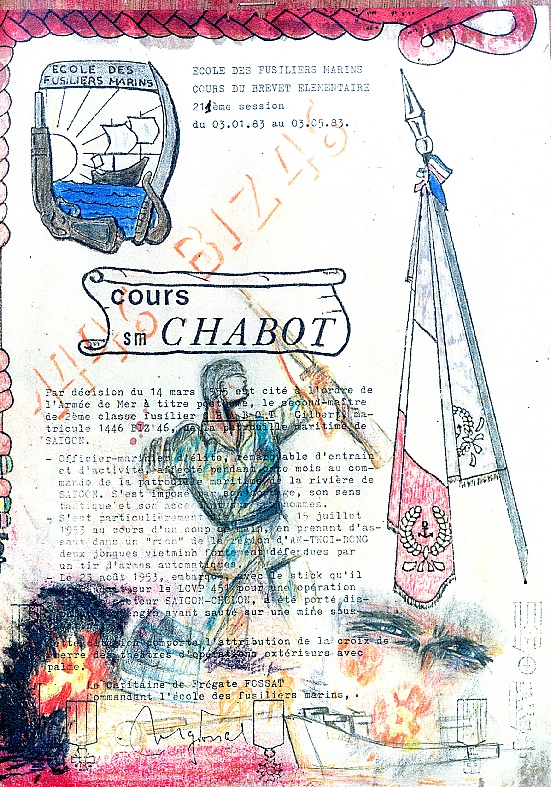 ECOLE DES
FUSILIERS MARINS
ECOLE DES FUSILIERS MARINS
COURS DU BREVET ELEMENTAIRE
211ème session
du 03.01.83 au 03.05.83.
1446 BIZ 46
cours
sm CHABOT
Par décision du 14 mars est cité à l'ordre de
l'Armée de Mer à titre posthume, le second-maître
de 2ème classe fusilier C H A B O T Gilbert, ma-
tricule 1446 BIZ 46, de la patrouille maritime de
SAIGON.
- Officier-marinier d'élite, remarquable d'entrain
et d'activité, affecté pendant onze mois au com-
mando de la patrouille maritime de la rivière de
SAIGON. S'est imposé par son courage, son sens
tactique et son hommes.
- S'est particulièrement 15 juillet
1953 au cours d'un coup de main, en prenant d'as-
saut dans un de la région d'AN-THOI-DONG
deux jonques vietminh fortement défendues par
un tir d'armes automatiques.
- Le 23 août 1953, embarqué avec le stick qu'il
sur le LCVP 45 pour une opération
secteur SAIGON-CHOLON, a été porté dis-
engin ayant sauté sur une mine sous-
Cette citation comporte l'attribution de la croix de
guerre des théâtres d'opérations extérieurs avec
palme.
Le Capitaine de Frégate FOSSAT
Commandant l'école des fusiliers marins,